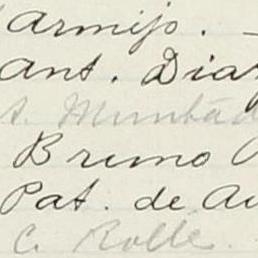 Armijo. –
ant. Diaz
s. Muntad
Bruno
Pat. de Au
C. Rolle.